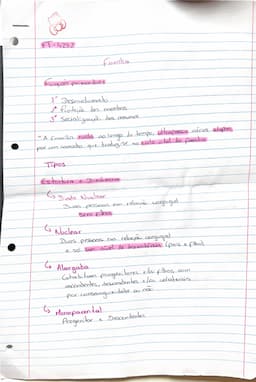 FT-4292
Família
Funções primordiais
1º Desenvolvimento
2º Proteção dos membros
3º Socialização dos mesmos
"A família muda ao longo do tempo, ultrapassa várias etapas
por um caminho que traduz-se no ciclo vital da família
Tipos
Estrutura e Dinâmica
↳ Díade Nuclear
Duas pessoas em relação conjugal
Sem filhos
↳ Nuclear
Duas pessoas na relação conjugal
e só um nível de descendência (pais e filhos)
↳ Alargada
Coabitam progenitores e/ou filhos com
ascendentes, descendentes e/ou colaterais
por consanguinidade ou não
↳ Monoparental
Progenitor e Descendentes